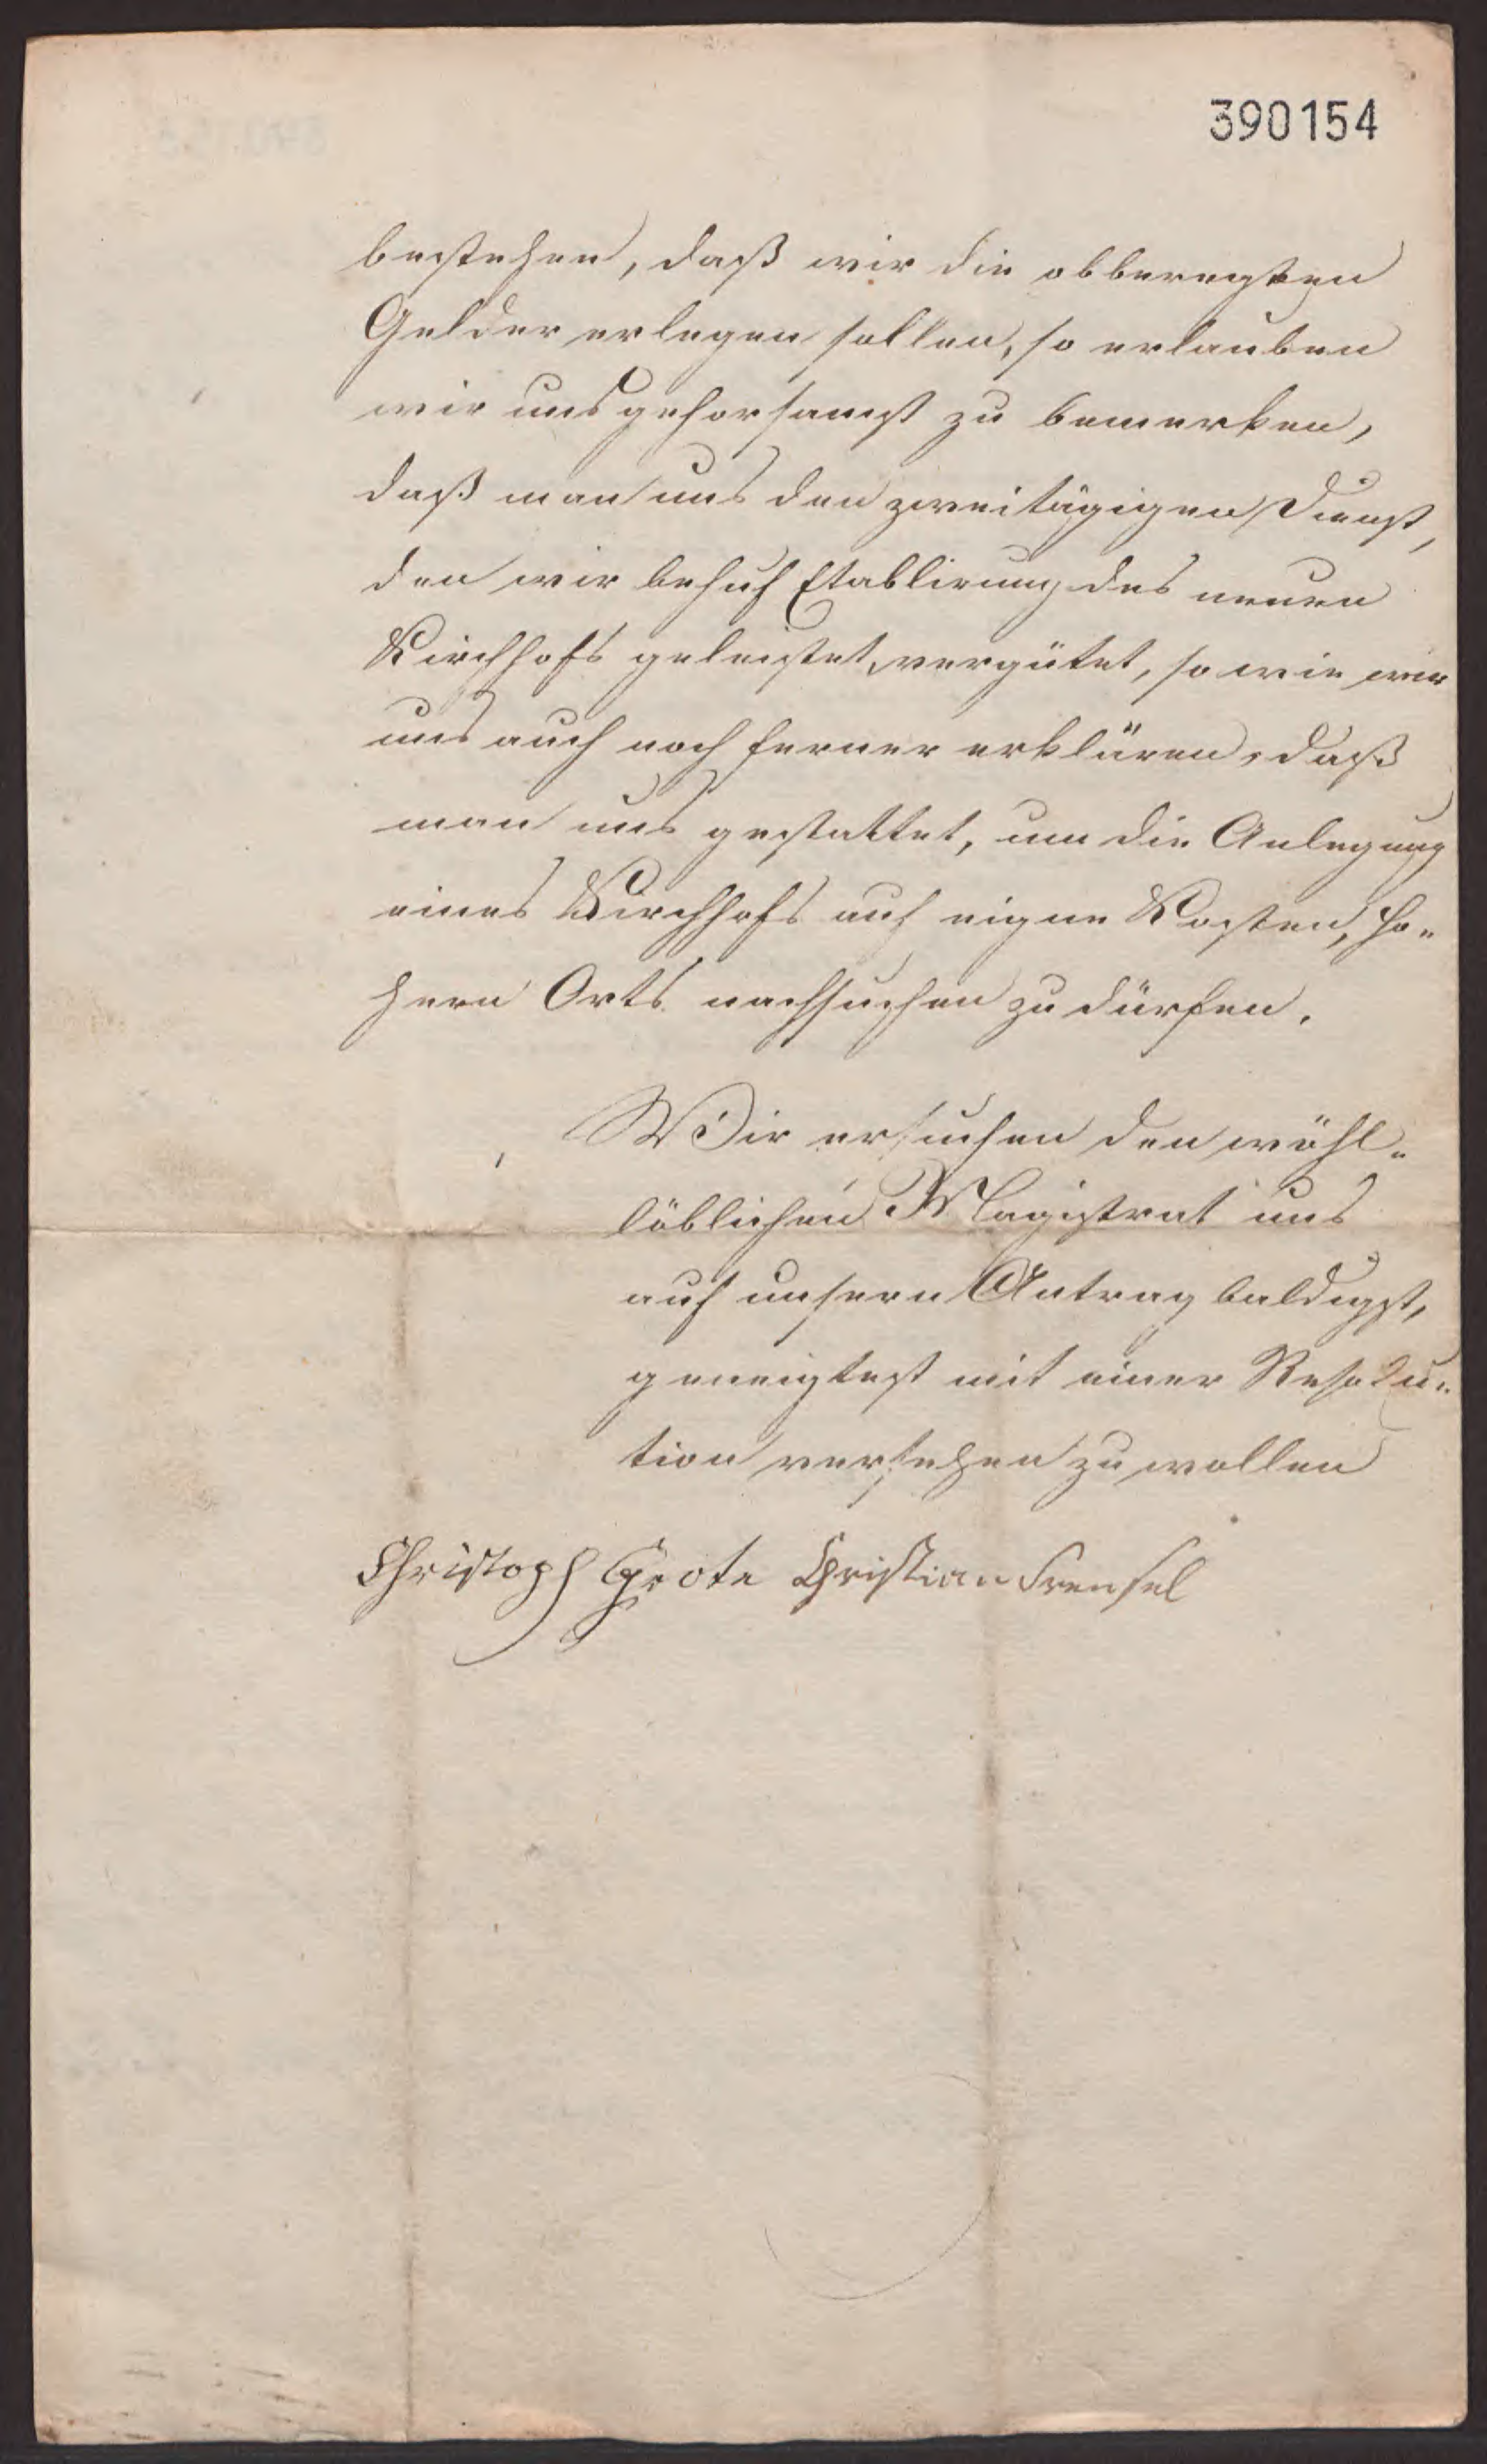 390154
bestehen, daß wir die obberegten
Gelder erlegen sollen, so erlauben
wir uns gehorsamst zu bemerken,
daß man uns den zweitägigen Dienst,
den wir behuf Etablirung des neuen
Kirchhofs geleistet, vergütet, so wie wir
uns auch noch ferner erklären, daß
man uns gestattet, um die Anlegung
eines Kirchhofs auf eigne Kosten, hö-
hern Orts nachsuchen zu dürfen.
Wir ersuchen den wohl-
löblichen Magistrat uns
auf unsern Antrag baldigst,
geneigtest mit einer Resolu-
tion versehen zu wollen
Christoph Grote Christian Frensel